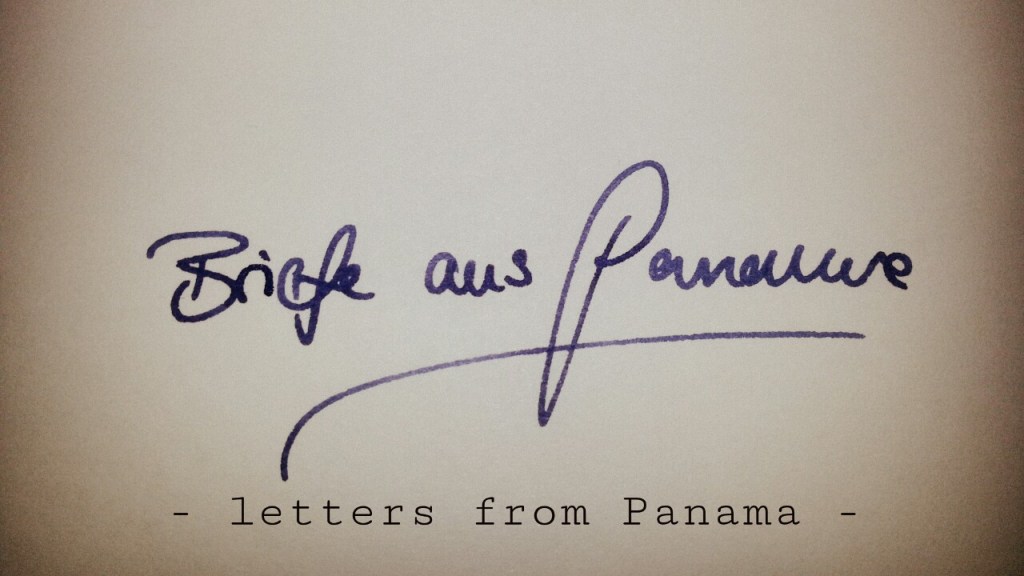 Briefe aus Panama
- letters from Panama -